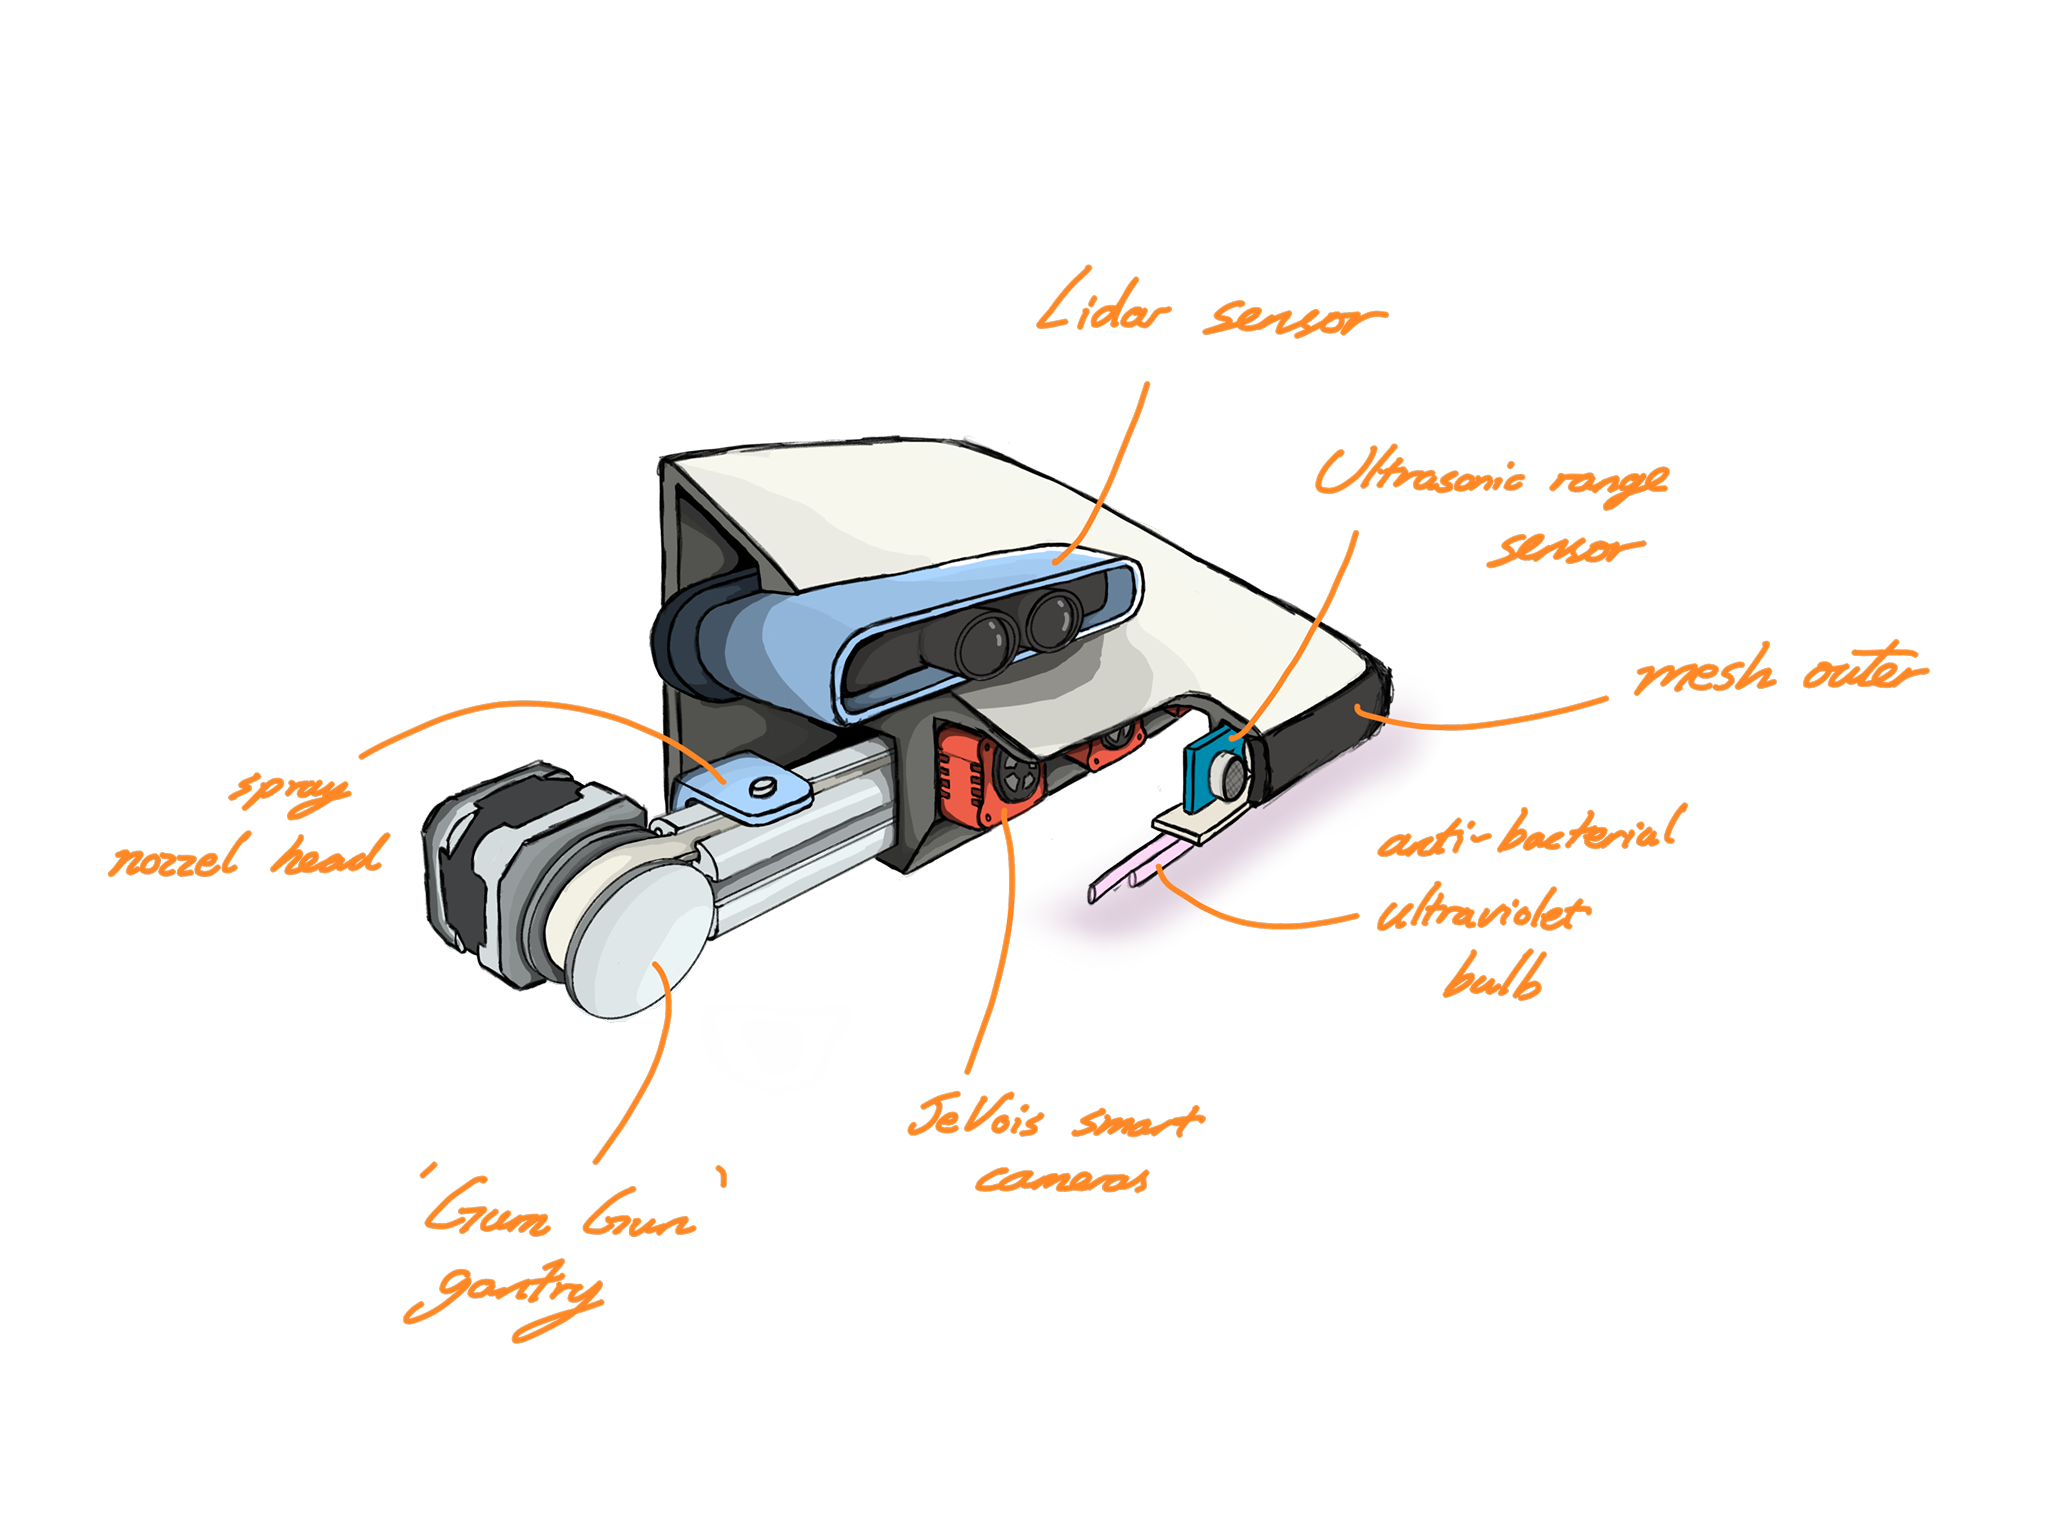 Lidar sensor
Ultrasonic range
sensor
mesh outer
spray
nozzel head
anti-bacterial
ultraviolet
bulb
JeVois smart
cameras
'Gum Gun'
gantry